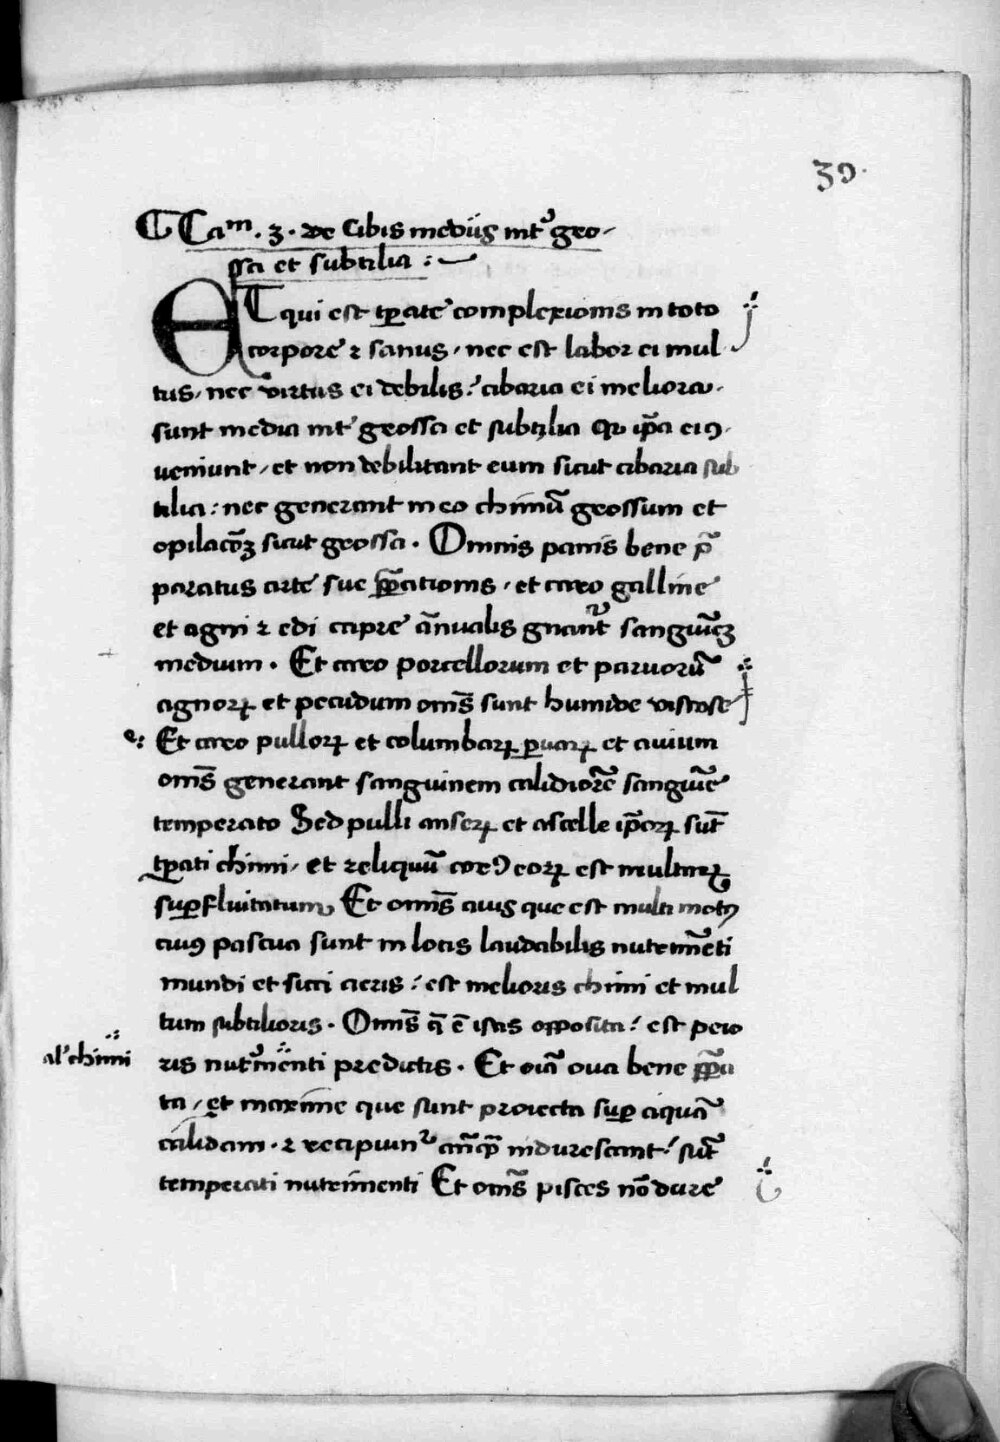 39.
Cam. 3. de Cibis mediijs int' gro-
ssa et subtilia :~
ET qui est tp̱ate complexionis in toto
corpore ⁊ sanus, nec est labor ei mul
tus, nec virtus ei debilis: cibaria ei meliora.
sunt media int' grossa et subtilia qr ip̄a ei ꝯ.
veniunt, et non debilitant eum sicut cibaria sub
tilia: nec generant in eo chimū grossum et
opilacōꝫ sicut grossa. Omnis panis bene p̄
paratus arte sue p̄p̱ationis, et caro galline
et agni ⁊ edi capre ānualis gnānt sanguīeꝫ
medium. Et caro porcellorum et paruorū
agnoꝝ et pecudum om̄s sunt humide viscose
Et caro pulloꝝ et columbaꝝ paruaꝝ et auium
om̄s generant sanguinem calidiorē sanguīe
temperato Sed pulli anseꝝ et ascelle ip̄aꝝ sūt
tp̱ati chimi, et reliquū corꝑ eoꝝ est multaꝝ
suꝑfluitatum. Et om̄s auis que est multi motꝰ
cuiꝰ pascua sunt in locis laudabilis nutrimēti
mundi et sicci aeris: est melioris chimi et mul
tum subtilioris. Om̄s q̄ ē istis opposita: est peio
al' chimi
ris nutrimenti predictis. Et oīa oua bene p̄pa
ta, et maxime que sunt proiecta suꝑ aquā
calidam. ⁊ recipiunt' an̄q̄ indurescant: sūt
temperati nutrimenti Et om̄s pisces nō dure